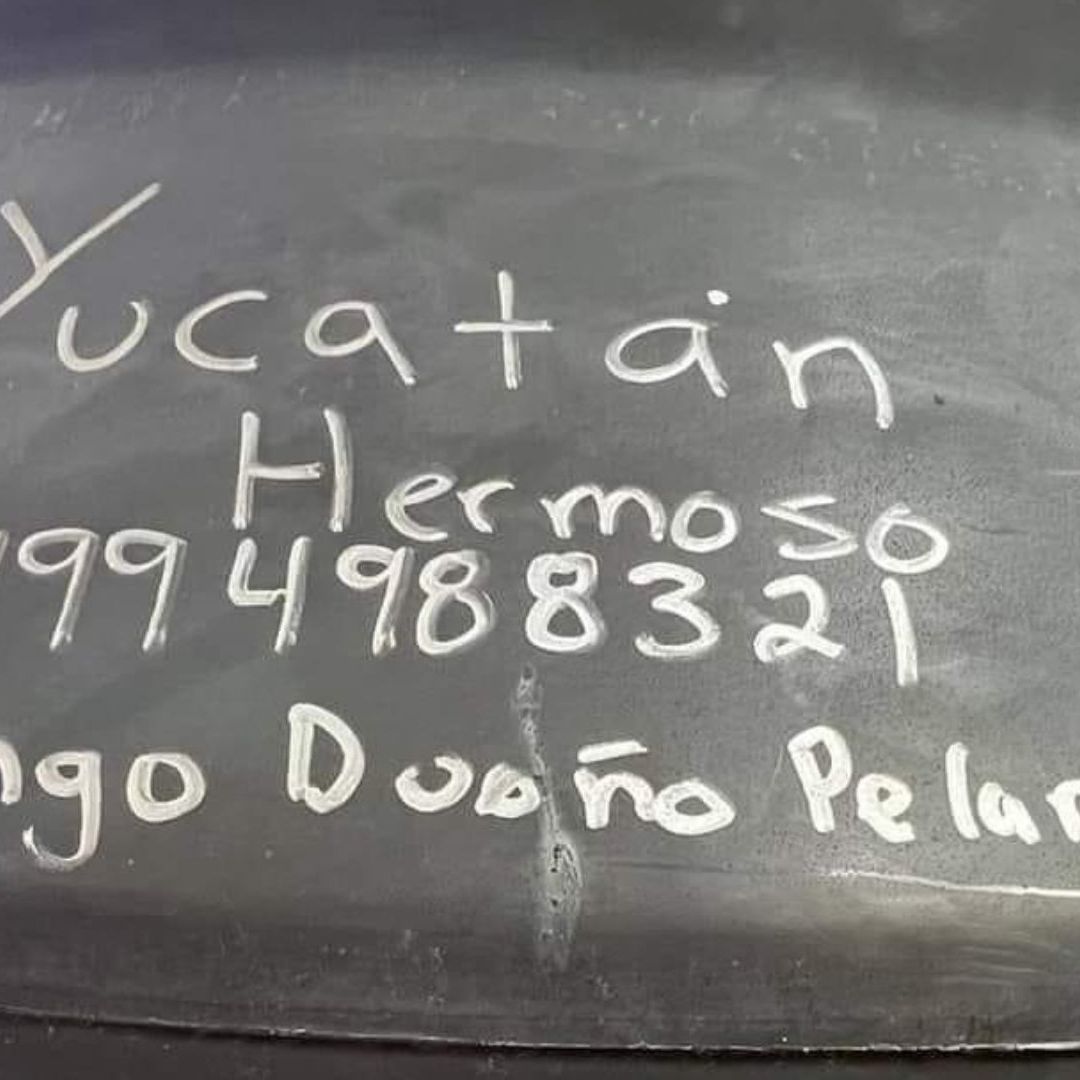 Yucatán
Hermoso
999 4988321
ngo Duoño Pelar